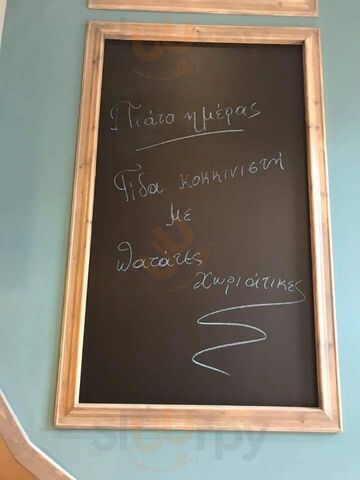 Πιάτο ημέρας
Γίδα κοκκινιστή
με
πατάτες
χωριάτικες
sluurpy